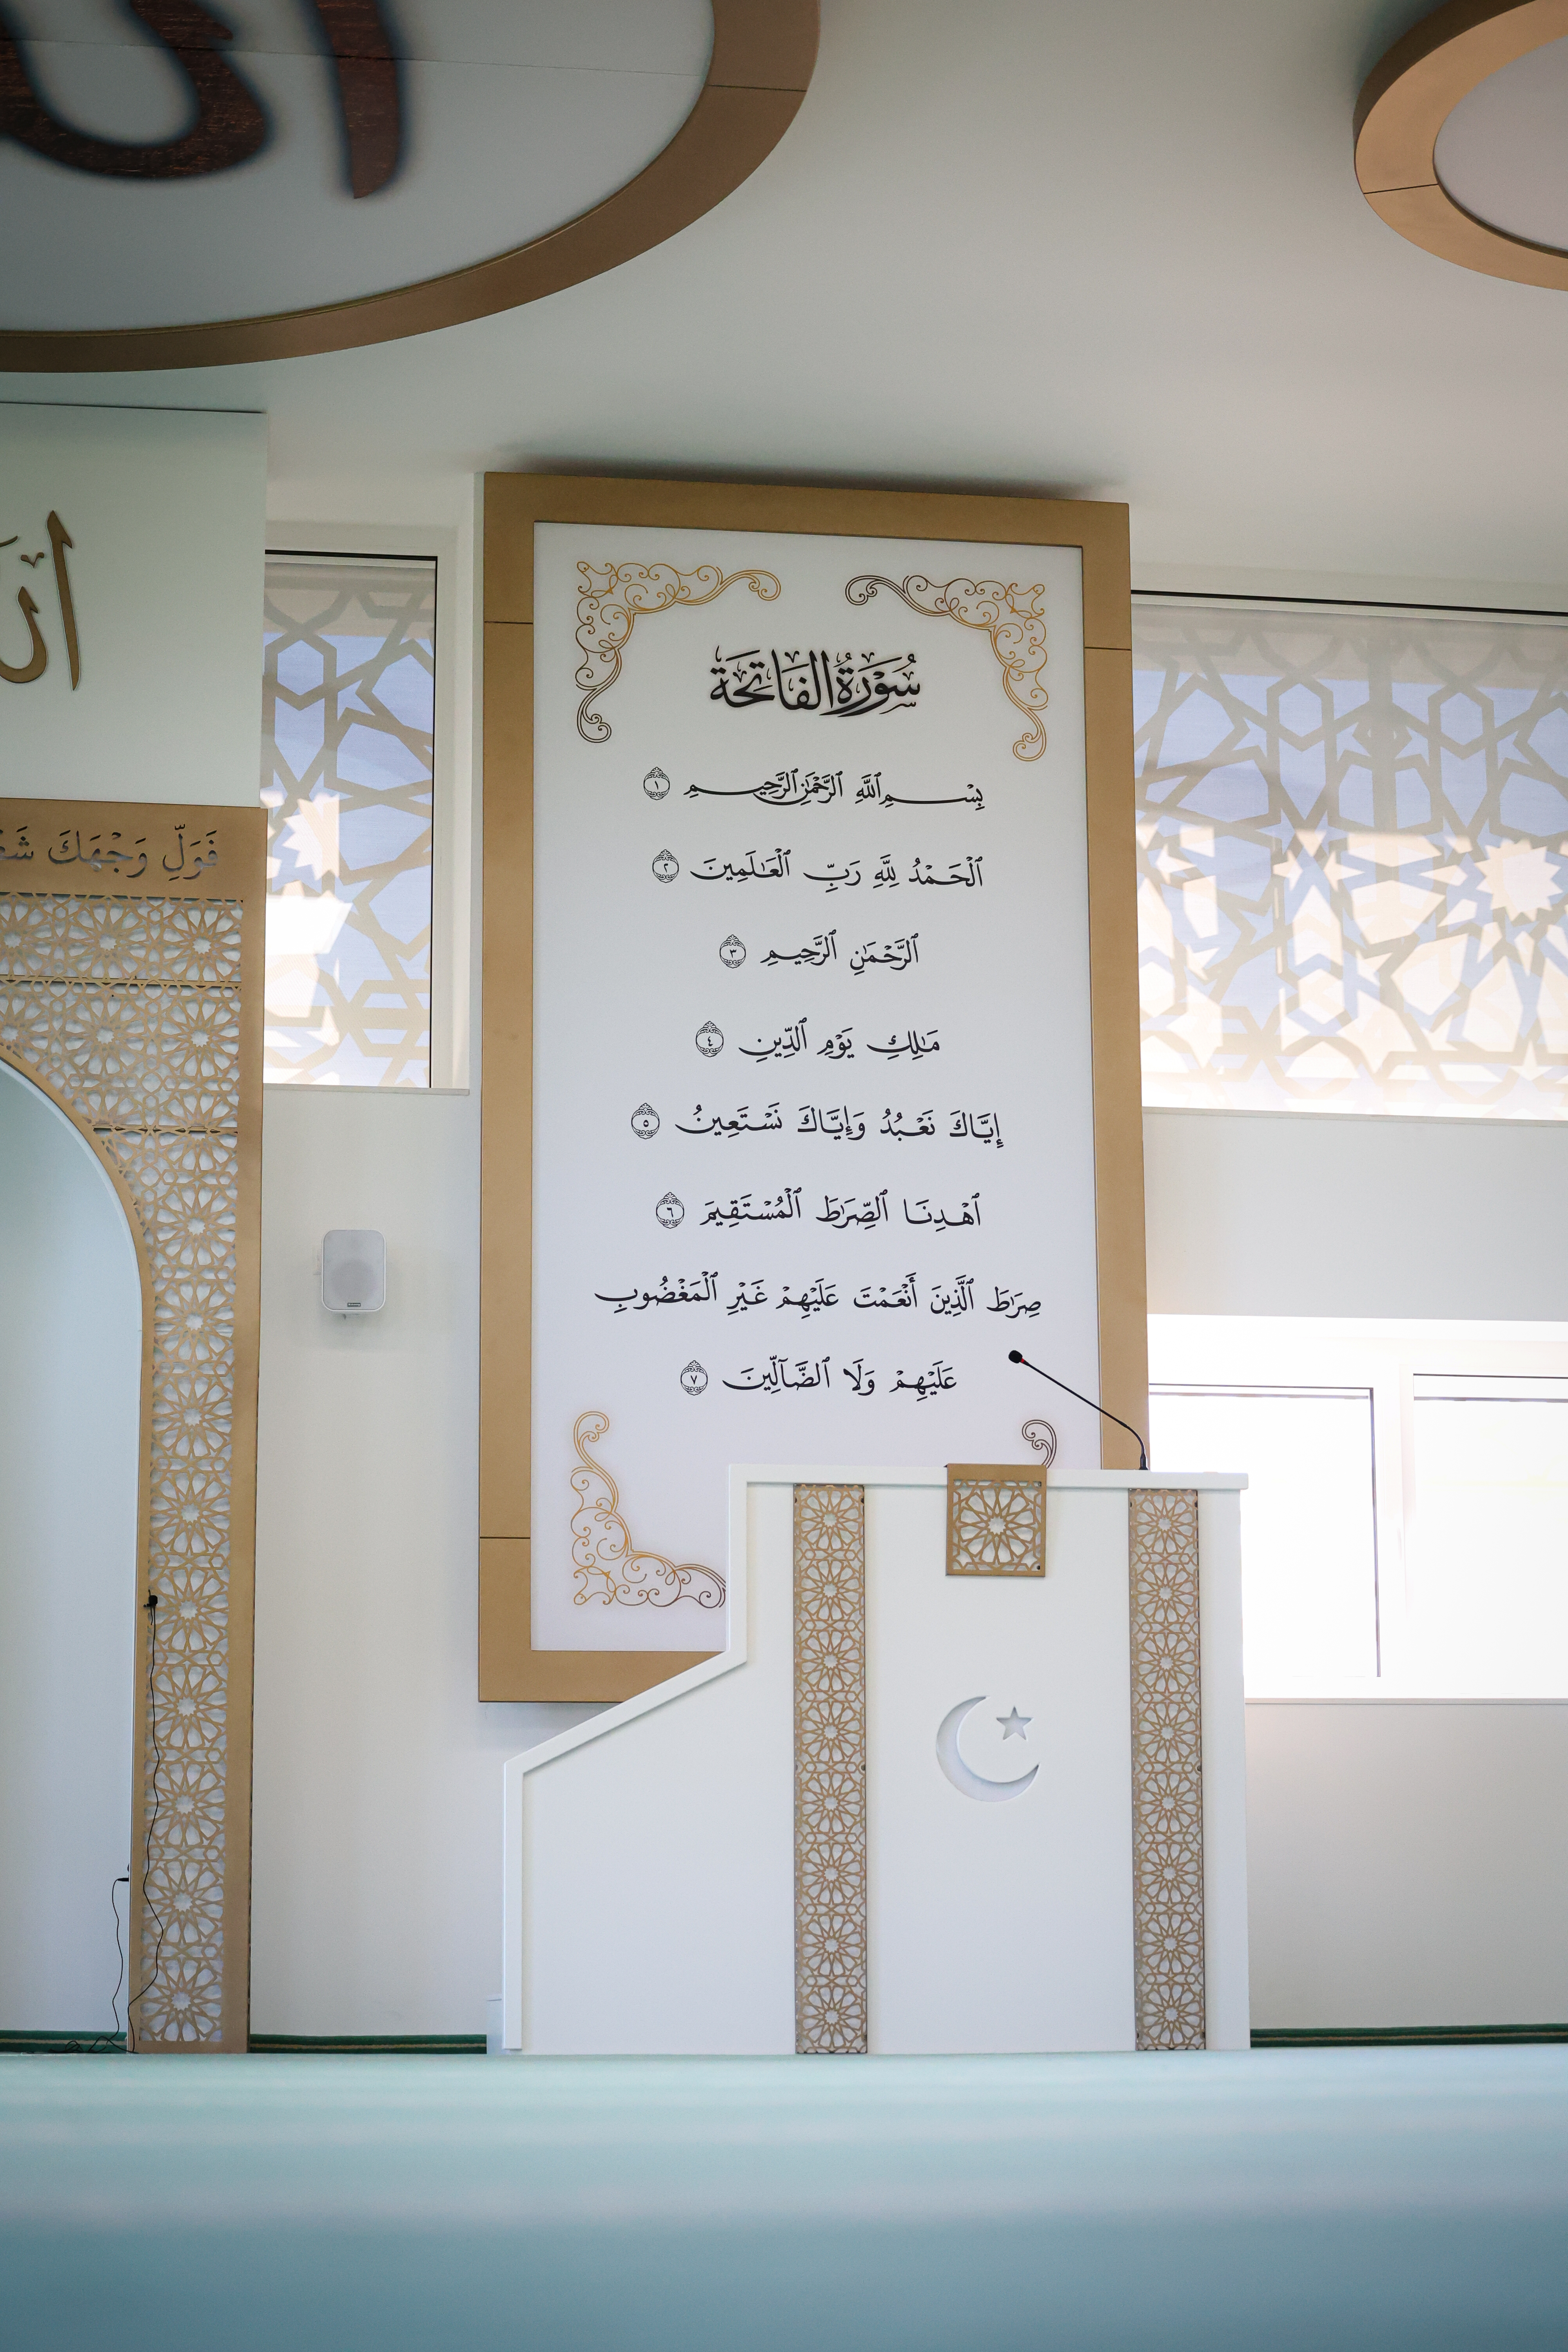 سُوْرَةُ الفَاتِحَة
بِسْمِ ٱللَّهِ ٱلرَّحْمَٰنِ ٱلرَّحِيمِ ١
ٱلْحَمْدُ لِلَّهِ رَبِّ ٱلْعَٰلَمِينَ ٢
ٱلرَّحْمَٰنِ ٱلرَّحِيمِ ٣
مَٰلِكِ يَوْمِ ٱلدِّينِ ٤
إِيَّاكَ نَعْبُدُ وَإِيَّاكَ نَسْتَعِينُ ٥
ٱهْدِنَا ٱلصِّرَٰطَ ٱلْمُسْتَقِيمَ ٦
صِرَٰطَ ٱلَّذِينَ أَنْعَمْتَ عَلَيْهِمْ غَيْرِ ٱلْمَغْضُوبِ
عَلَيْهِمْ وَلَا ٱلضَّآلِّينَ ٧
فَوَلِّ وَجْهَكَ